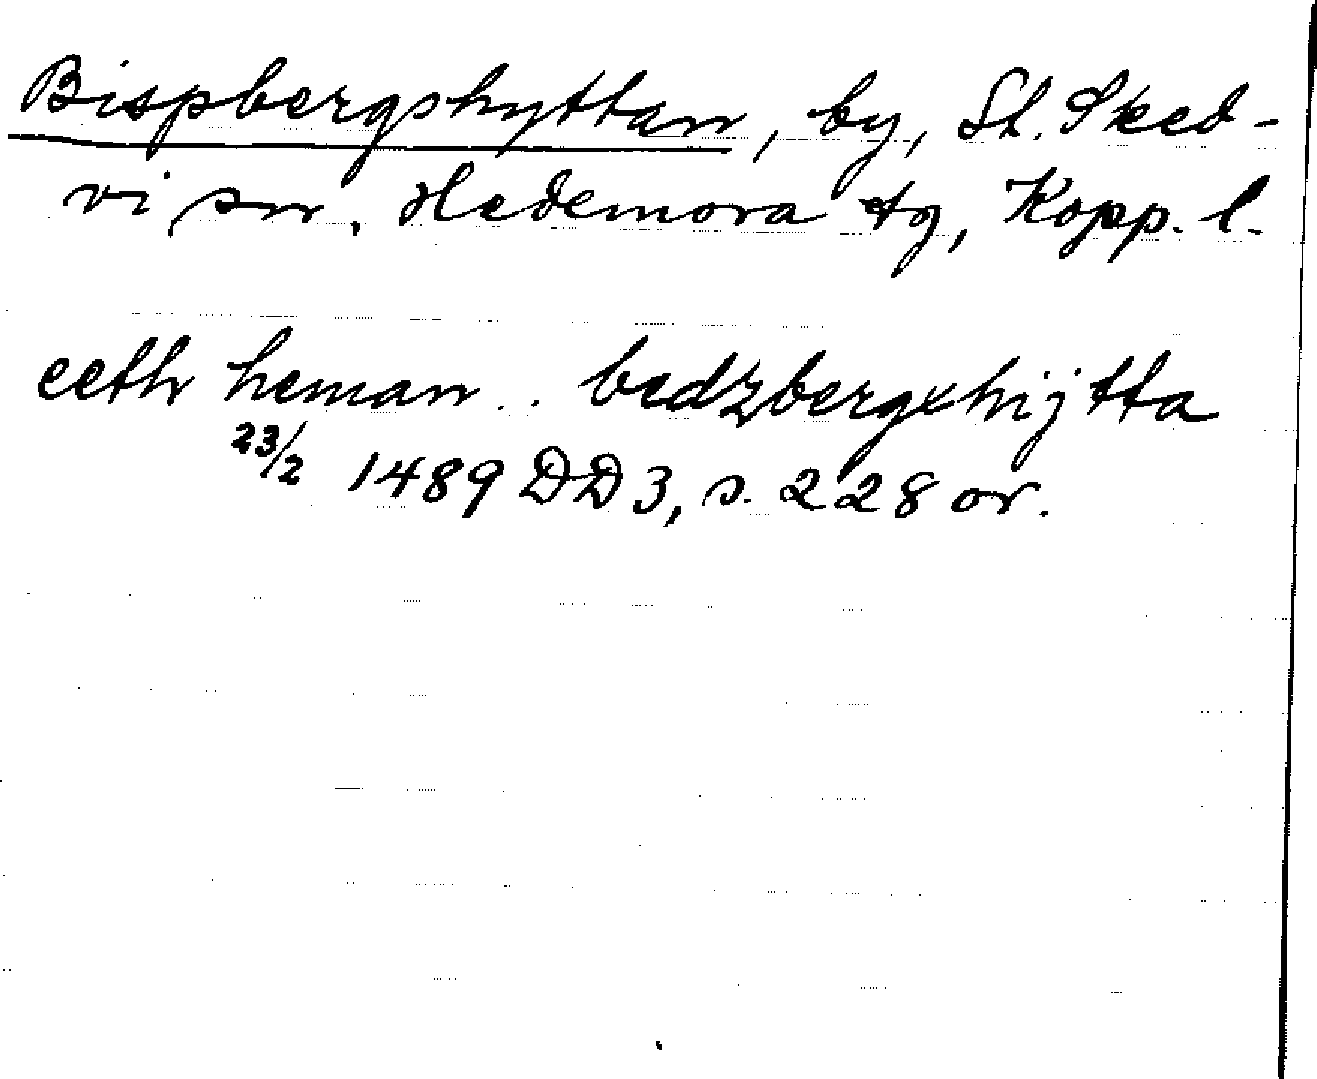 Bispbergshyttan, by, St. Sked-
vi sn, Hedemora tg, Kopp. l.
eeth heman .. bedzbergxhijtta
23/2 1489 DD 3, s. 228 or.